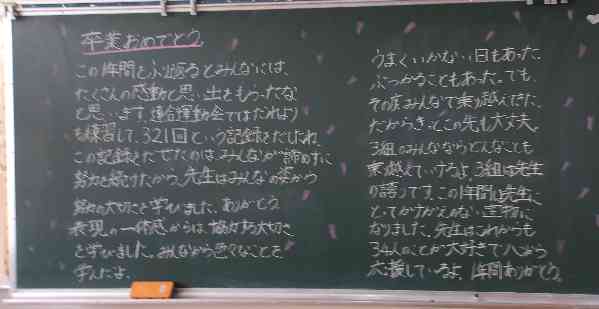 卒業おめでとう。
この1年間をふり返るとみんなには、
たくさんの感動と思い出をもらったなと
と思います。連合運動会ではだれより
も練習して、321回という記録をだしたね。
この記録をだせたのは、みんなが諦めずに
努力を続けたから。先生はみんなの姿から
努力の大切さを学びました。ありがとう。
表現の一体感からは、協力する大切さ
を学びました。みんなから色々なことを
学んだよ。
うまくいかない日もあった。
ぶつかることもあった。でも、
その度みんなで乗り越えてきた。
だからきっとこの先も大丈夫。
3組のみんなならどんなことも
乗り越えていけるよ。3組は先生
の誇りです。この1年間は先生に
とってかけがえのない宝物に
なりました。先生はこれからも
34人のことが大好きで心から
応援しているよ。1年間ありがとう。